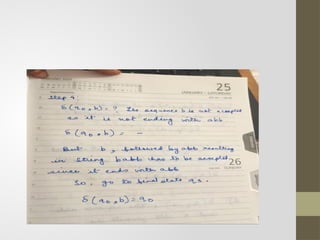 25
JANUARY - SATURDAY
Step 4
δ(q0,b) = ? The sequence b is not accepted
as it is not ending with abb
δ(q0,b) = --
But b, followed by abb resulting
in string babb has to be accepted
since it ends with abb
26
SUNDAY
So, go to final state q3.
δ(q0,b) = q0